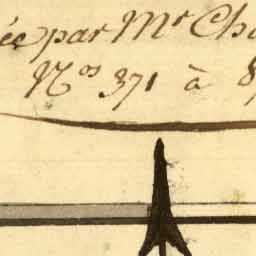 ée par Mr Cha
Nos 371 à 8